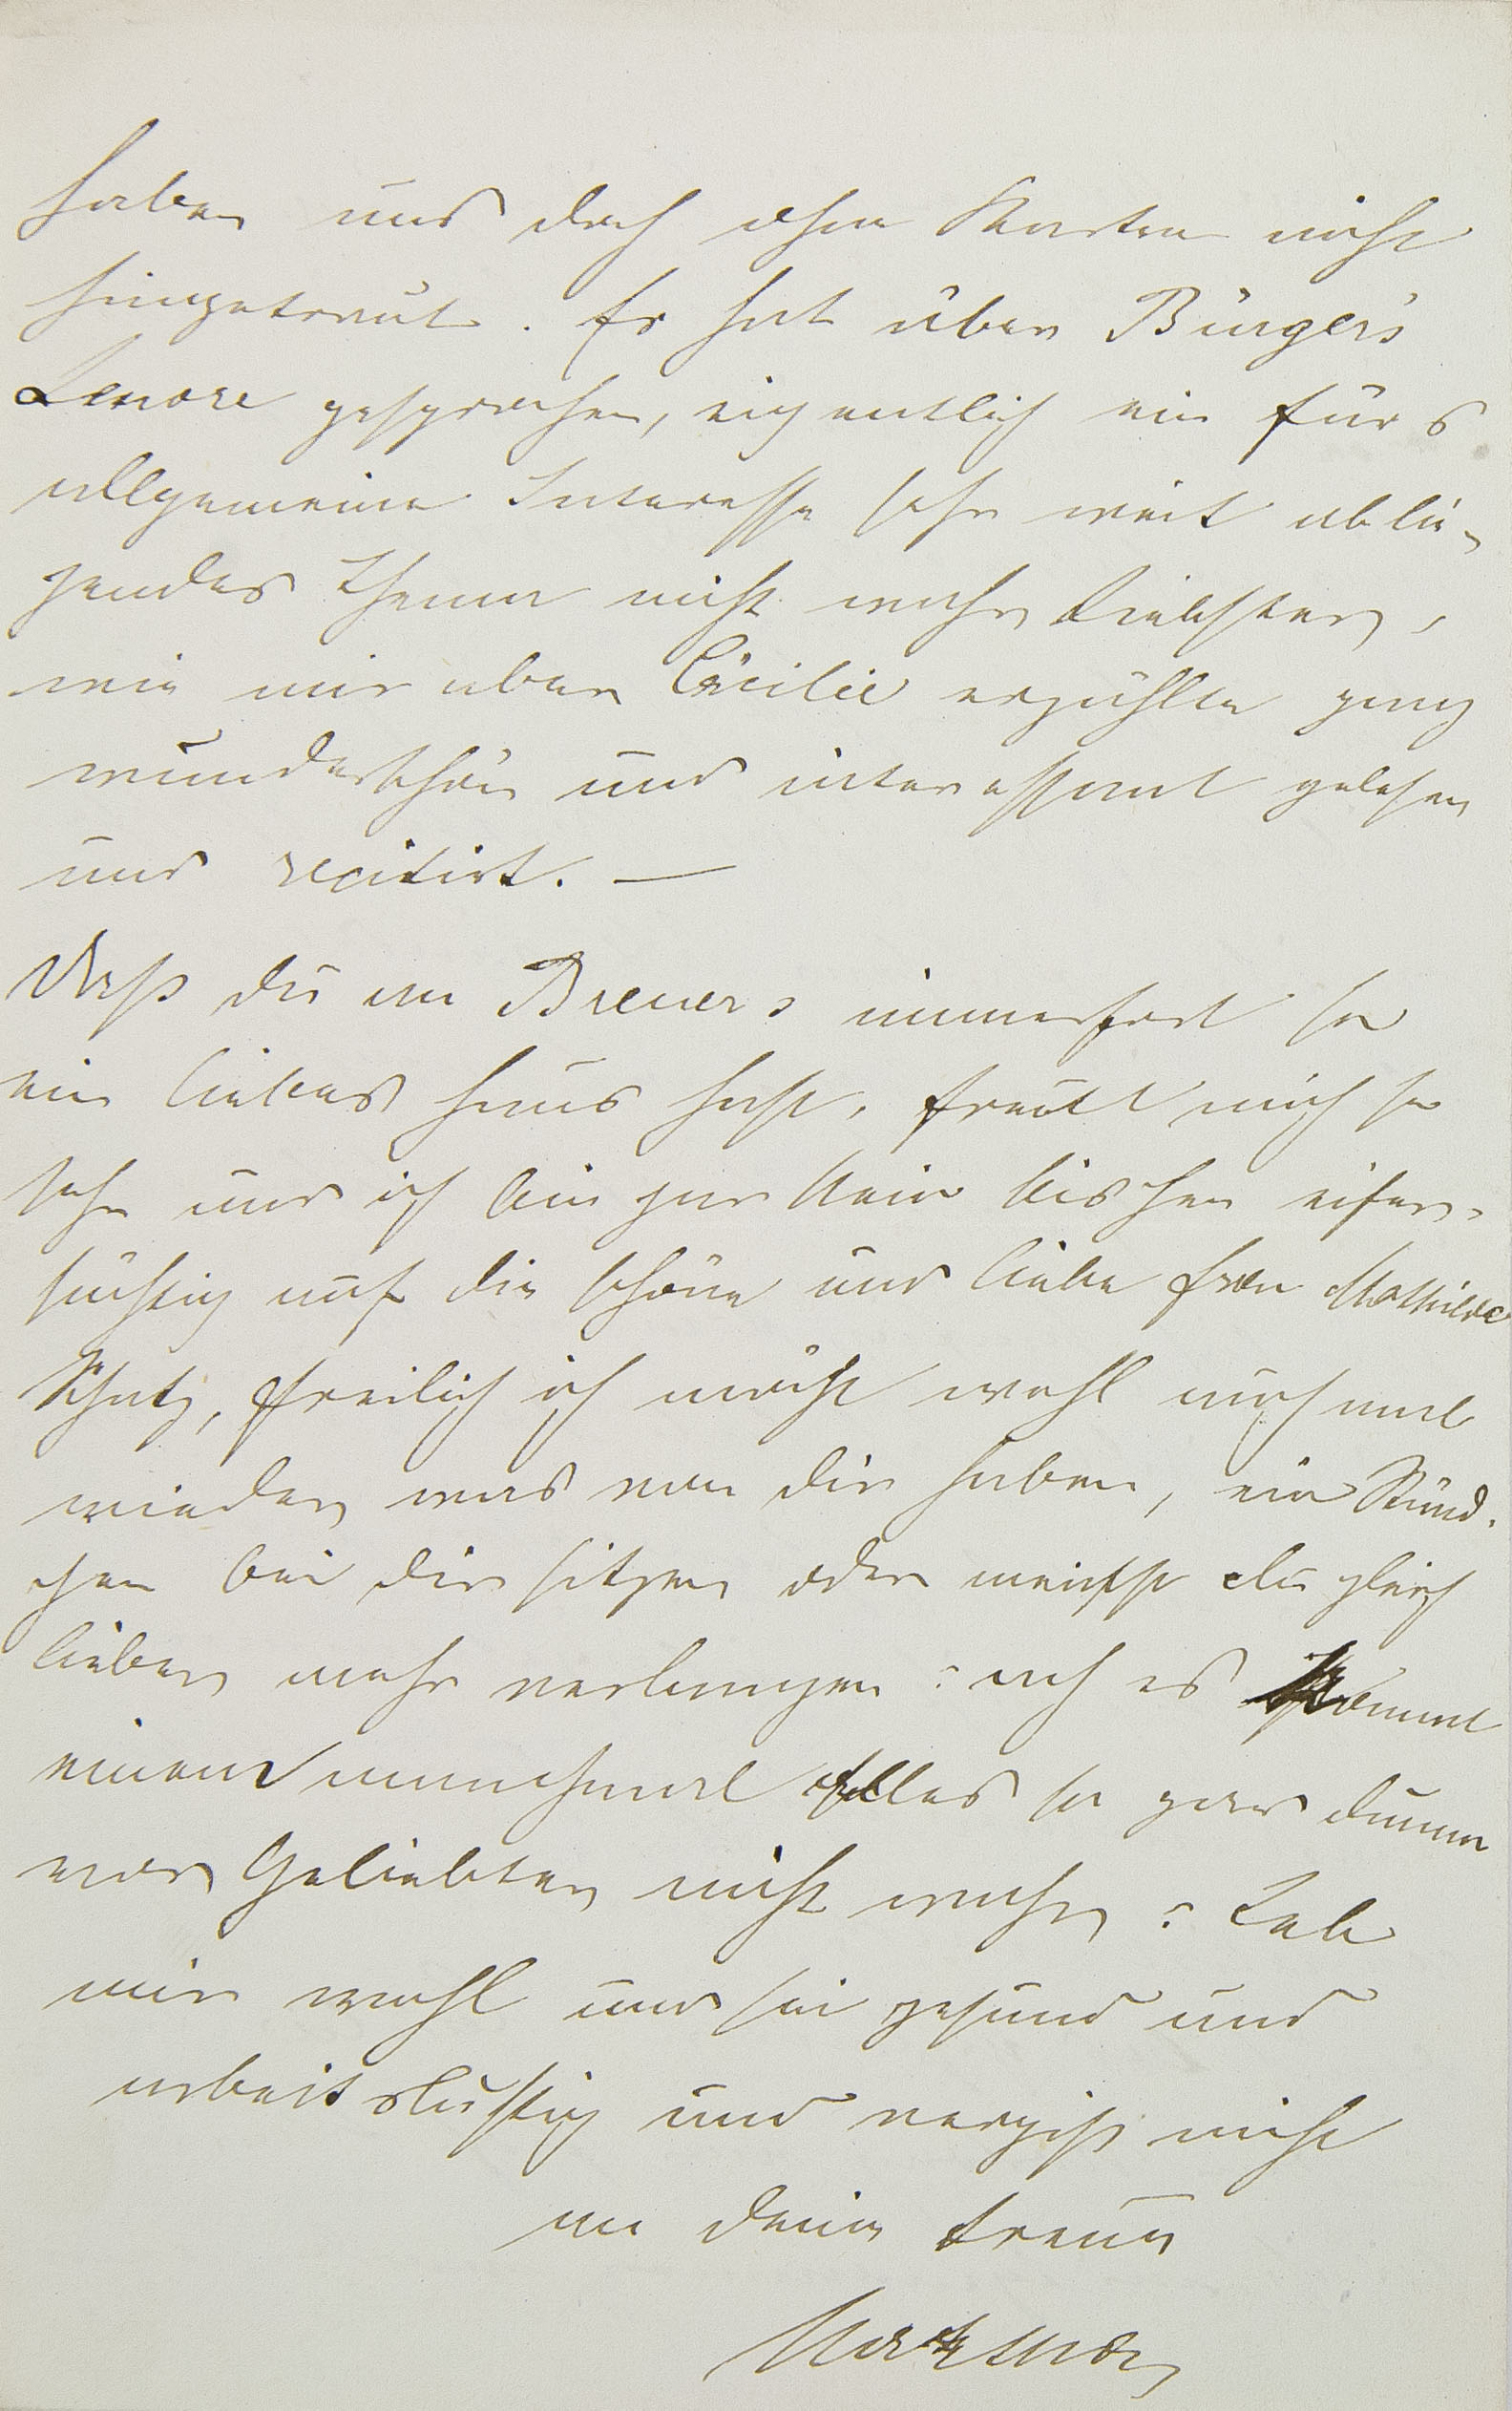 haben uns doch ohne Karten nicht
hingetraut. Er hat über Bürger's
Lenore gesprochen, eigentlich ein für's
allgemeine Interesse sehr weit ablie-
gendes Thema nicht wahr Liebster,
wie mir aber Cäcilie erzählte ganz
wunderschön und interessant gelesen
und recitirt. —
Daß du an Breuers immerfort so
ein liebes Haus hast, freut mich so
sehr und ich bin gar kein bischen eifer-
süchtig auf die schöne und liebe Frau Mathilde
Schatz, freilich ich möcht wohl auch mal
wieder was von dir haben, ein Stünd-
chen bei dir sitzen oder möchtst du gleich
lieber mehr verlangen? ach es kommt
einem manchmal alles so gar dumm
vor Geliebter nicht wahr? Leb
mir wohl und sei gesund und
arbeitslustig und vergiß nicht
an deine treue